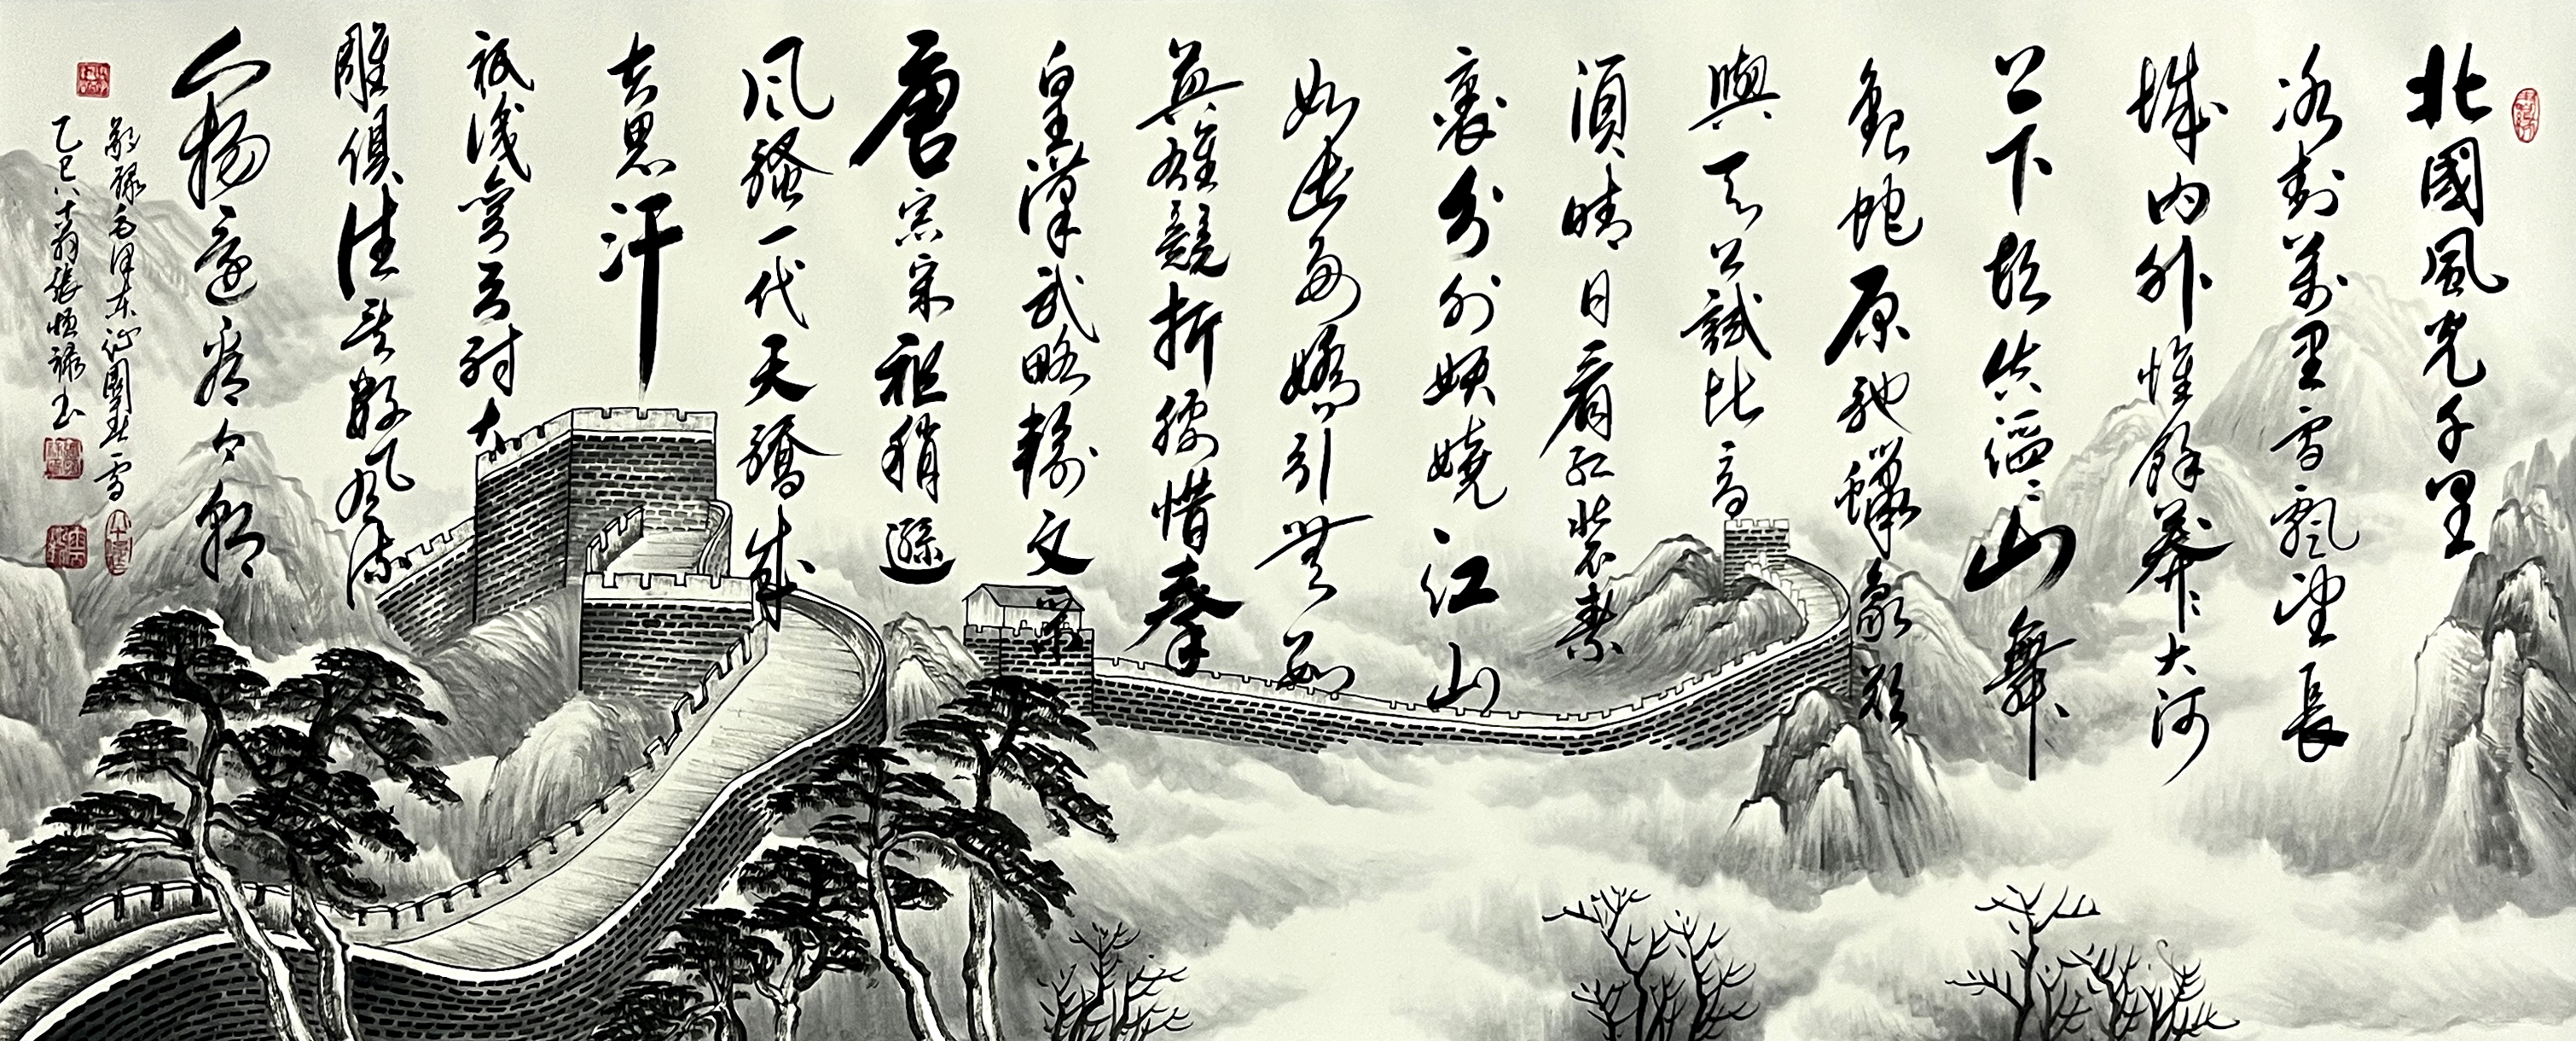 北國風光千里
冰封萬里雪飄望長
城内外惟餘莽〻大河
上下頓失滔〻山舞
銀蛇原馳蠟象欲
與天公試比高
須晴日看紅裝素
裹分外妖嬈江山
如此多嬌引無數
英雄競折腰惜秦
皇漢武略輸文采
唐宗宋祖稍遜
风騷一代天驕成
吉思汗
祇識彎弓射大
雕俱往矣數风流
人物還看今朝
敬録毛泽东沁園春雪
乙巳八十翁張恒禄书